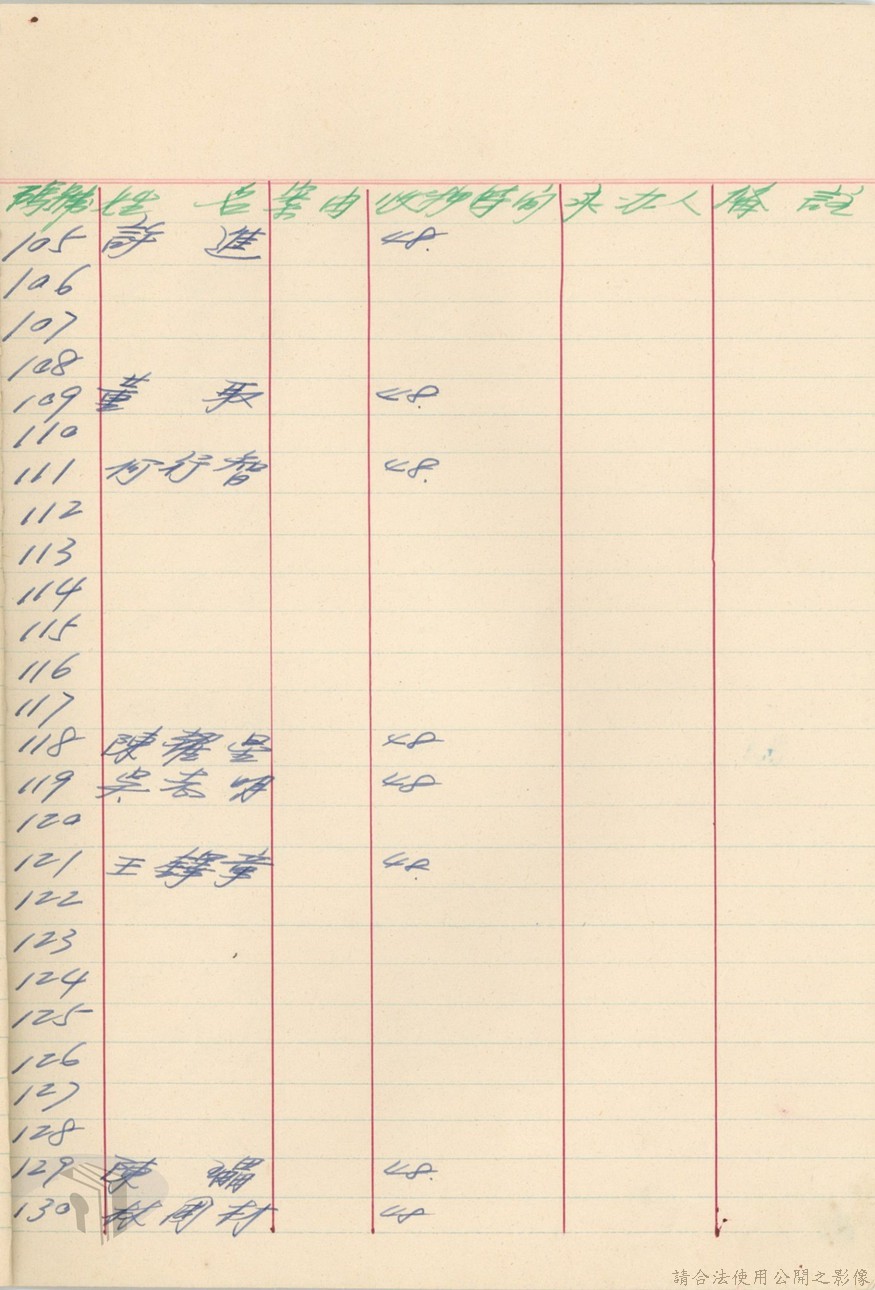 號碼 姓 名 案 由 收押時 承 辦 人 備 註
105 許 進 48.
106
107
108
109 董 取 48.
110
111 柯行智 48.
112
113
114
115
116
117
118 陳 48
119 吳 明 48
120
121 王鐸章 48.
122
123
124
125
126
127
128
129 陳 48.
130 林國村 48
請合法使用公開之影像